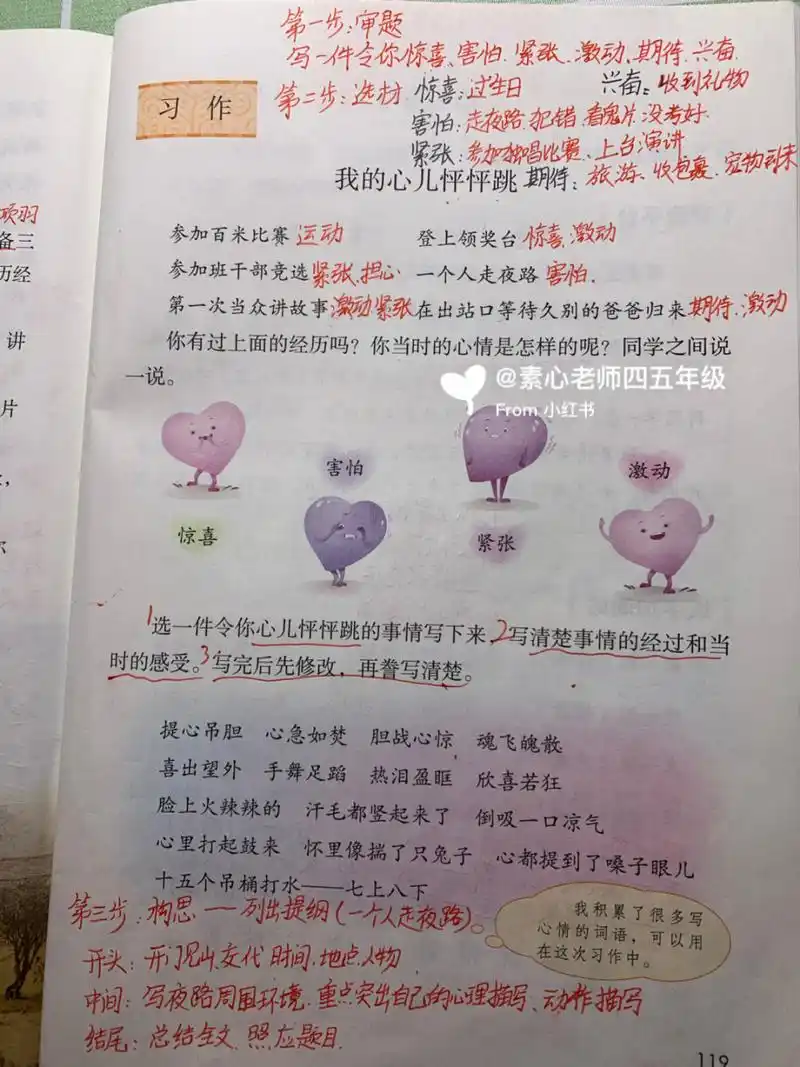 第一步:审题
写一件令你惊喜、害怕、紧张、激动、期待、兴奋.
第二步:选材 惊喜:过生日 兴奋:收到礼物
害怕:走夜路.犯错.看鬼片.没考好.
紧张:参加独唱比赛、上台演讲
习 作
我的心儿怦怦跳 期待:旅游、收包裹、宠物到来
项羽
备三
历经
讲
片
参加百米比赛 运动 登上领奖台 惊喜.激动
参加班干部竞选 紧张.担心 一个人走夜路 害怕.
第一次当众讲故事 激动紧张 在出站口等待久别的爸爸归来 期待.激动
你有过上面的经历吗？你当时的心情是怎样的呢？同学之间说
一说。
@素心老师四五年级
From 小红书
害怕
激动
惊喜
紧张
1选一件令你心儿怦怦跳的事情写下来，2写清楚事情的经过和当
时的感受。3写完后先修改，再誊写清楚。
提心吊胆 心急如焚 胆战心惊 魂飞魄散
喜出望外 手舞足蹈 热泪盈眶 欣喜若狂
脸上火辣辣的 汗毛都竖起来了 倒吸一口凉气
心里打起鼓来 怀里像揣了只兔子 心都提到了嗓子眼儿
十五个吊桶打水——七上八下
我积累了很多写
心情的词语，可以用
在这次习作中。
第三步:构思——列出提纲(一个人走夜路)。
开头:开门见山.交代 时间.地点.人物
中间:写夜路周围环境.重点突出自己的心理描写、动作描写
结尾:总结全文.照应题目.
119